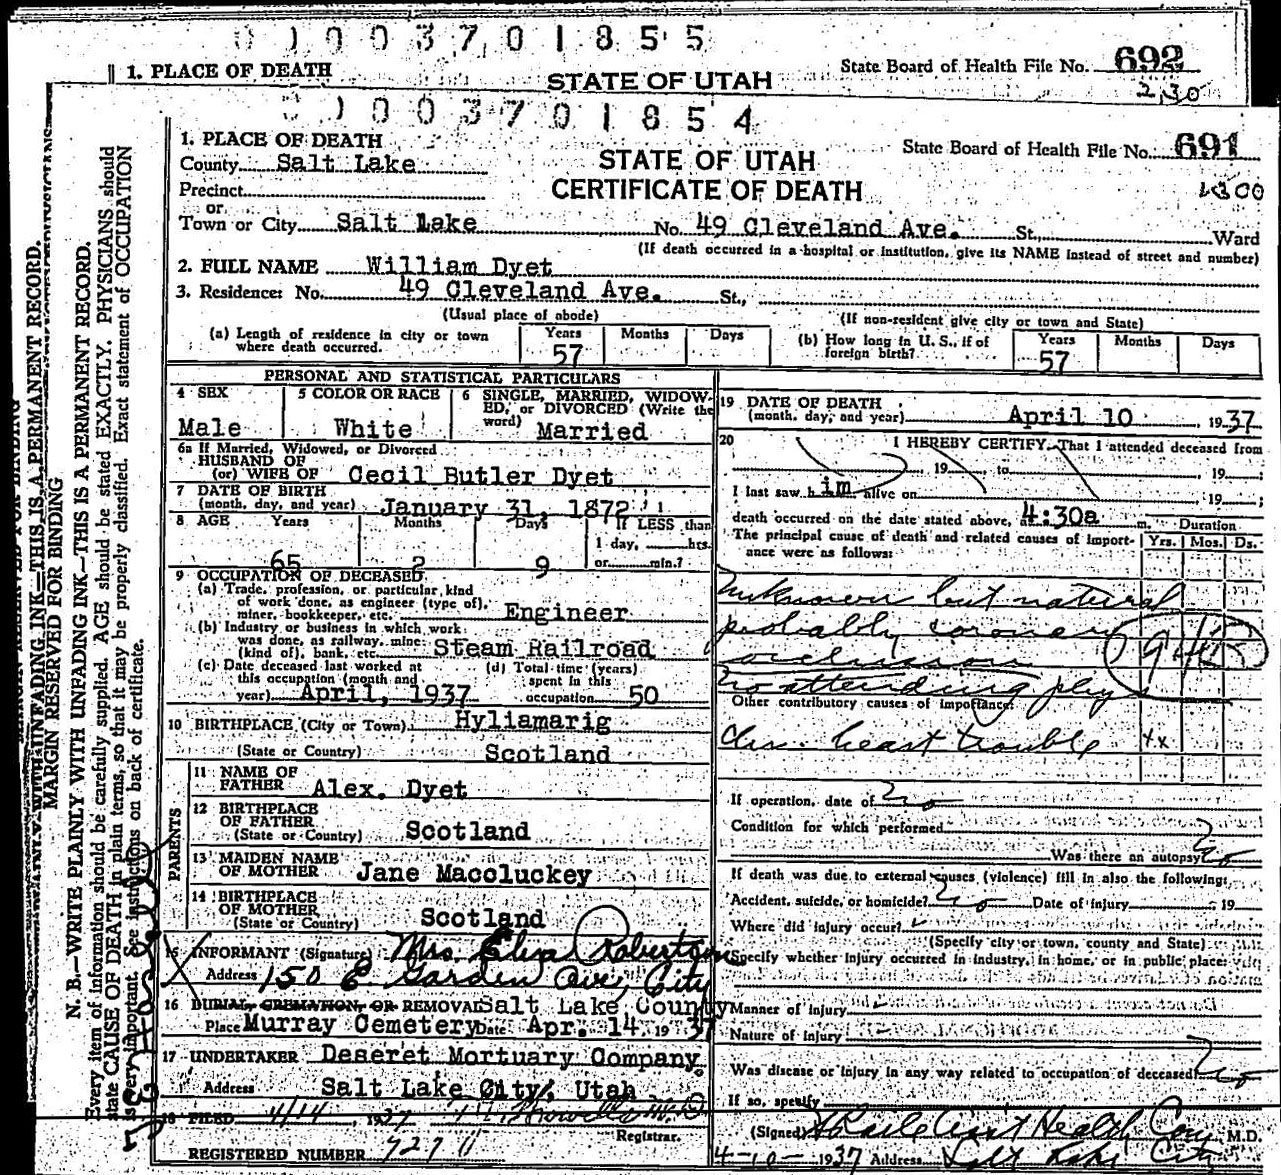 0 1 0 0 3 7 0 1 8 5 5
1. PLACE OF DEATH
STATE OF UTAH
State Board of Health File No. 692
2,30
0 1 0 0 3 7 0 1 8 5 4
1. PLACE OF DEATH
STATE OF UTAH
State Board of Health File No. 691
County Salt Lake
CERTIFICATE OF DEATH
1300
Precinct
or
Town or City Salt Lake No. 49 Cleveland Ave. St., Ward
(If death occurred in a hospital or institution, give its NAME instead of street and number)
2. FULL NAME William Dyet
3. Residence: No. 49 Cleveland Ave. St.,
(Usual place of abode) (If non-resident give city or town and State)
(a) Length of residence in city or town where death occurred. Years 57 Months Days
(b) How long in U. S., if of foreign birth? Years 57 Months Days
PERSONAL AND STATISTICAL PARTICULARS
4 SEX Male
5 COLOR OR RACE White
6 SINGLE, MARRIED, WIDOWED, or DIVORCED (Write the word) Married
6a If Married, Widowed, or Divorced
HUSBAND OF
(or) WIFE OF Cecil Butler Dyet
7 DATE OF BIRTH
(month, day, and year) January 31, 1872
8 AGE Years 65 Months 2 Days 9 If LESS than 1 day, hrs. or min.?
9 OCCUPATION OF DECEASED
(a) Trade, profession, or particular kind
of work done, as engineer (type of),
miner, bookkeeper, etc. Engineer
(b) Industry or business in which work
was done, as railway, mine
(kind of), bank, etc. Steam Railroad
(c) Date deceased last worked at
this occupation (month and
year) April, 1937
(d) Total time (years)
spent in this
occupation 50
10 BIRTHPLACE (City or Town) Hyliamarig
(State or Country) Scotland
PARENTS
11 NAME OF
FATHER Alex. Dyet
12 BIRTHPLACE
OF FATHER
(State or Country) Scotland
13 MAIDEN NAME
OF MOTHER Jane Maccluckey
14 BIRTHPLACE
OF MOTHER
(State or Country) Scotland
15 INFORMANT (Signature) Mrs. Elva Robertson
Address 150 E. Garden Ave, City
16 BURIAL, CREMATION, OR REMOVAL Salt Lake County
Place Murray Cemetery Date Apr. 14 1937
17 UNDERTAKER Deseret Mortuary Company
Address Salt Lake City, Utah
18 FILED 4/14, 1937
Registrar.
REGISTERED NUMBER 727
19 DATE OF DEATH
(month, day, and year) April 10, 1937
20 I HEREBY CERTIFY, That I attended deceased from
, 19 , to , 19
I last saw h im alive on , 19 ;
death occurred on the date stated above, at 4:30a m. Duration
The principal cause of death and related causes of importance were as follows: Yrs. Mos. Ds.
Unknown but natural
probably coronary
occlusion
no attending phys
Other contributory causes of importance:
chr. heart trouble xx
If operation, date of no
Condition for which performed
Was there an autopsy no
If death was due to external causes (violence) fill in also the following:
Accident, suicide, or homicide? no Date of injury 19
Where did injury occur?
(Specify city or town, county and State)
Specify whether injury occurred in industry, in home, or in public place:
Manner of injury
Nature of injury
Was disease or injury in any way related to occupation of deceased? no
If so, specify
(Signed) Health M.D.
4-10-1937 Address Salt Lake City
MARGIN RESERVED FOR BINDING
N. B.—WRITE PLAINLY WITH UNFADING INK—THIS IS A PERMANENT RECORD.
Every item of information should be carefully supplied. AGE should be stated EXACTLY. PHYSICIANS should
state CAUSE OF DEATH in plain terms, so that it may be properly classified. Exact statement of OCCUPATION
is very important. See instructions on back of certificate.